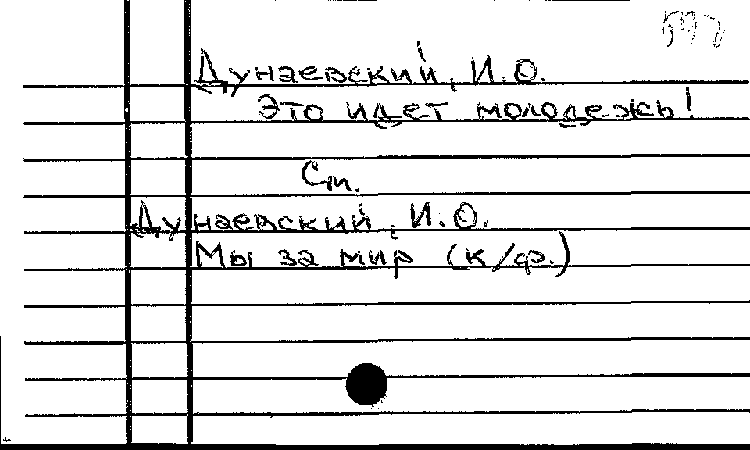 Дунаевский, И.О.
Это идет молодежь!
Ст.
Дунаевский, И.О.
Мы за мир (к/ф.)